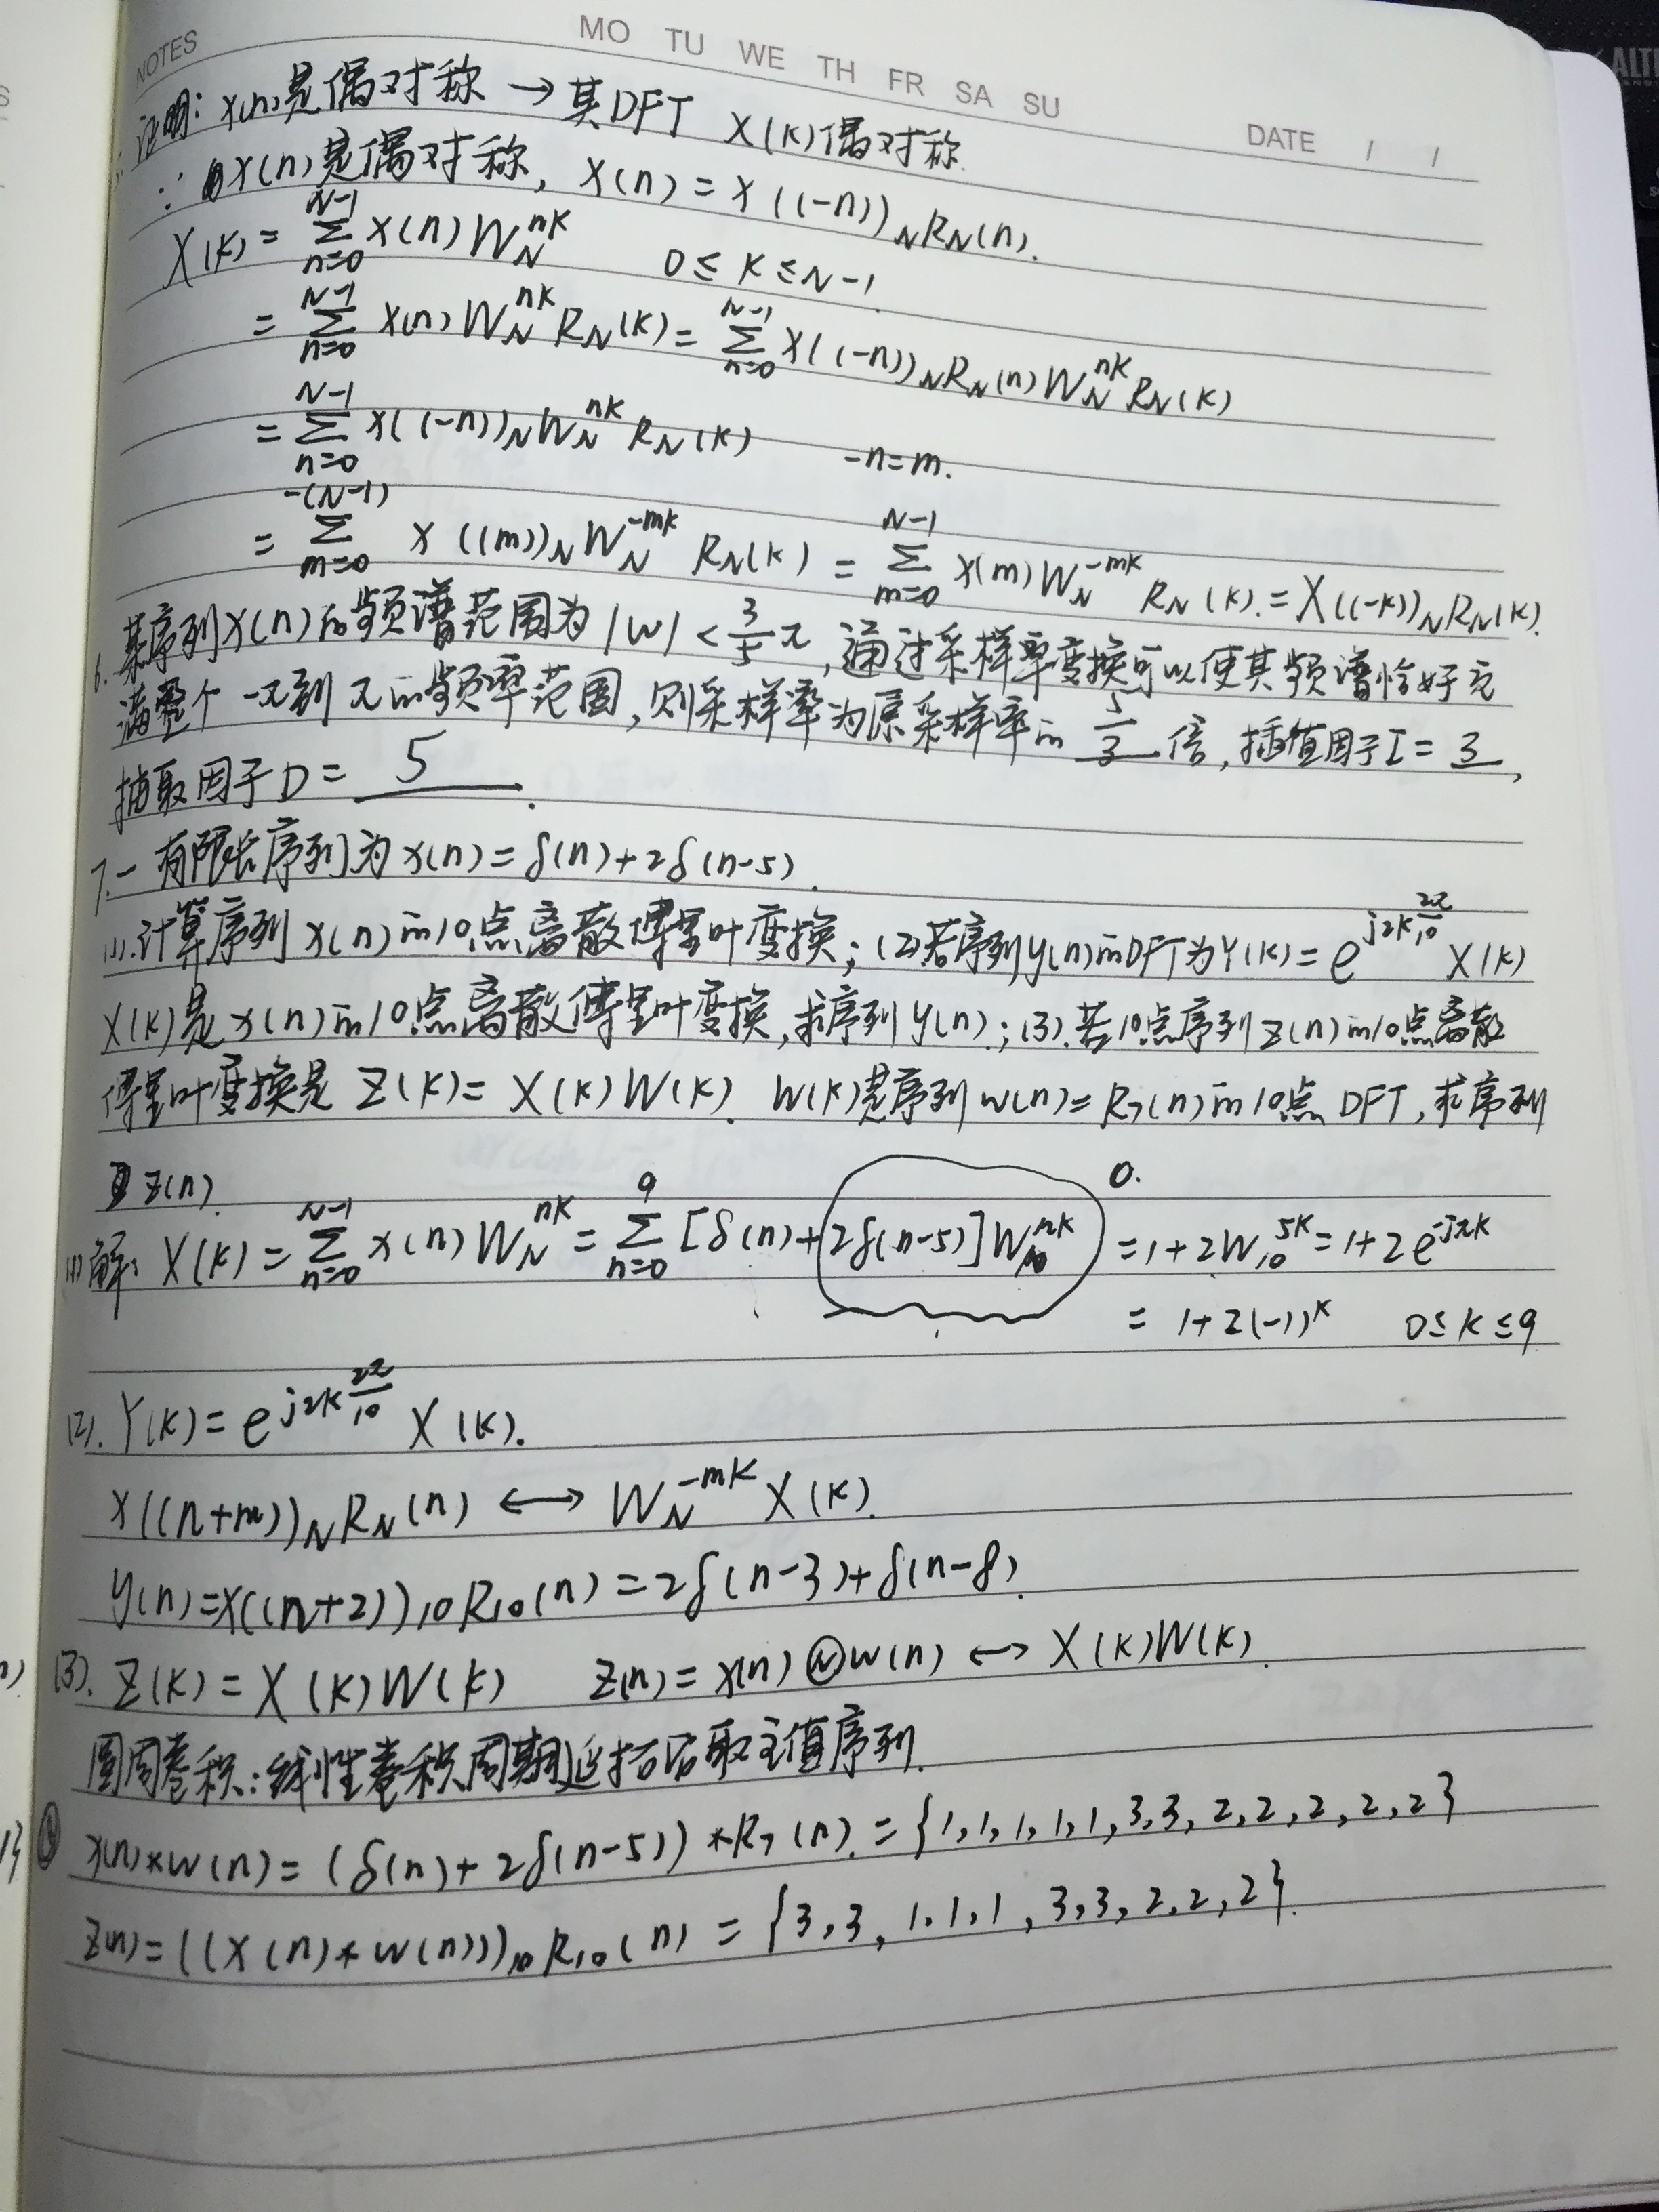 NOTES
MO TU WE TH FR SA SU
DATE / /
证明: x(n)是偶对称 → 其DFT X(k)偶对称.
∵ x(n)是偶对称, x(n) = x((-n))_N R_N(n).
X(k) = \sum_{n=0}^{N-1} x(n) W_N^{nk} 0 ≤ k ≤ N-1
= \sum_{n=0}^{N-1} x(n) W_N^{nk} R_N(k) = \sum_{n=0}^{N-1} x((-n))_N R_N(n) W_N^{nk} R_N(k)
= \sum_{n=0}^{N-1} x((-n))_N W_N^{nk} R_N(k) -n=m.
= \sum_{m=0}^{-(N-1)} x((m))_N W_N^{-mk} R_N(k) = \sum_{m=0}^{N-1} x(m) W_N^{-mk} R_N(k). = X((-k))_N R_N(k).
6. 某序列x(n)的频谱范围为 |w| < \frac{3}{5}π, 通过采样率变换可以使其频谱恰好充
满整个 -π到 π的频率范围, 则采样率为原采样率的 \frac{5}{3} 倍, 插值因子I = 3,
抽取因子D = 5.
7. 一有限长序列为 x(n) = δ(n)+2δ(n-5).
(1).计算序列 x(n)的10点离散傅里叶变换; (2)若序列y(n)的DFT为Y(k) = e^{j2k\frac{2π}{10}} X(k)
X(k)是 x(n)的10点离散傅里叶变换, 求序列 y(n); (3).若10点序列 z(n)的10点离散
傅里叶变换是 Z(k) = X(k)W(k). W(k)是序列 w(n) = R_7(n)的10点 DFT, 求序列
z(n).
0.
(1)解: X(k) = \sum_{n=0}^{N-1} x(n) W_N^{nk} = \sum_{n=0}^{9} [δ(n)+2δ(n-5)] W_{10}^{nk} = 1+2W_{10}^{5k} = 1+2e^{-jπk}
= 1+2(-1)^k 0 ≤ k ≤ 9
(2). Y(k) = e^{j2k\frac{2π}{10}} X(k).
x((n+m))_N R_N(n) ↔ W_N^{-mk} X(k).
y(n) = x((n+2))_{10} R_{10}(n) = 2δ(n-3)+δ(n-8).
(3). Z(k) = X(k)W(k) z(n) = x(n) Ⓝ w(n) ↔ X(k)W(k).
圆周卷积: 线性卷积周期延拓后取主值序列.
x(n)*w(n) = (δ(n)+2δ(n-5)) * R_7(n). = {1,1,1,1,1,3,3,2,2,2,2,2}
z(n) = ((x(n)*w(n)))_{10} R_{10}(n) = {3,3,1,1,1,3,3,2,2,2}.